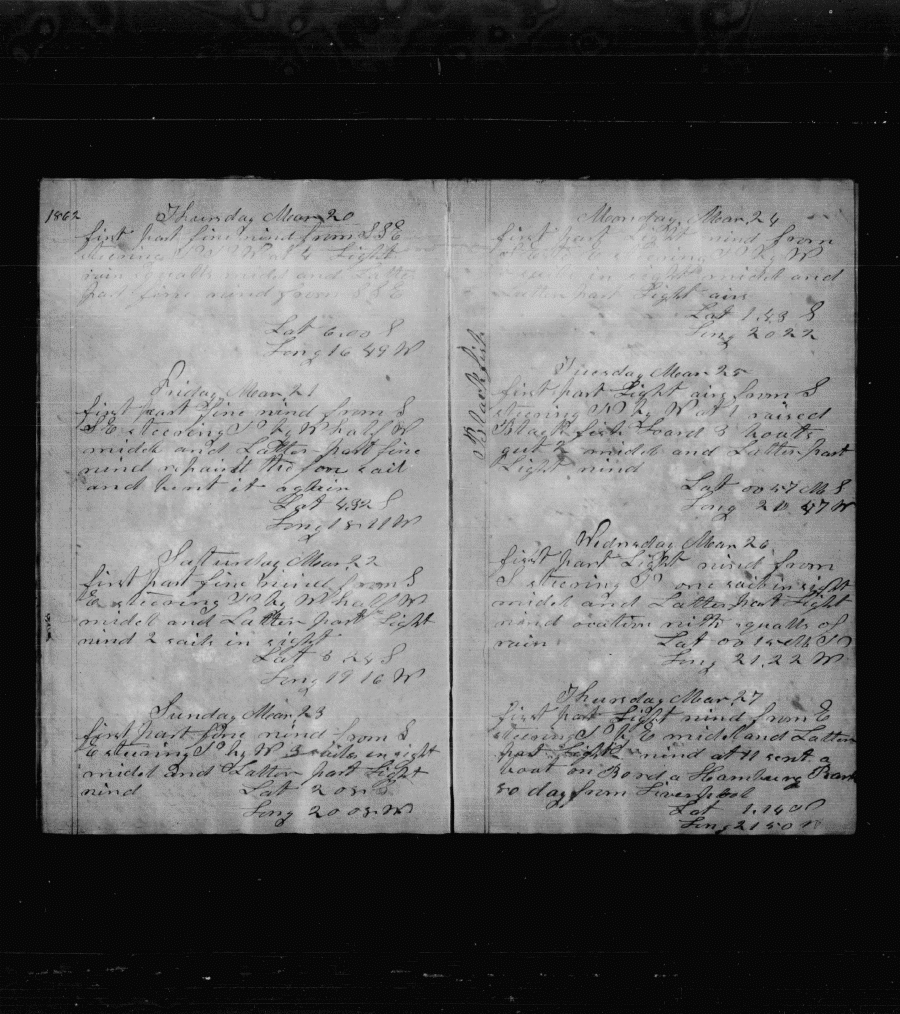 1862
Thursday Mar 20
first part fine wind from S S E
steering N W at 4 Light
rain squalls midel and Latter
part fine wind from S S E
Lat 6.00 S
Long 16 49 W
Friday Mar 21
first part fine wind from S
S E steering N by W half W
midel and Latter part fine
wind repaired the fore sail
and bent it again
Lat 4.32 S
Long 18.11 W
Satturday Mar 22
first part fine wind from S
E steering N by W half W
midel and Latter part Light
wind 2 sails in sight
Lat 3 24 S
Long 19 16 W
Sunday Mar 23
first part fine wind from S
E steering N by W 3 sails in sight
midel and Latter part Light
wind Lat 2 05 S
Long 20 05 W
Blackfish
Monday Mar 24
first part Light wind from
steering N by W
sails in sight midel and
Latter part Light airs
Lat 1.43 S
Long 20 22
Tuesday Mar 25
first part Light airs from S
steering N by W at 1 raised
Black fish Loard 3 boats
gut 2 midel and Latter part
Light wind
Lat 00 47 M S
Long 21 47 W
Wednsday Mar 26
first part Light wind from
S steering N one sail in sight
midel and Latter part Light
wind with squalls of
rain Lat 00 15 M N
Long 21.22 W
Thursday Mar 27
first part Light wind from E
steering N by E midel and Latter
part Light wind at 11 sent a
boat on Bord a Hamburg Bark
50 day from Liverpool
Lat 1.14 N
Long 21 50